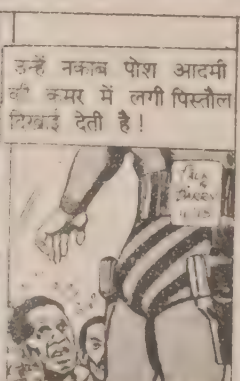 उन्हें नकाब पोश आदमी
की कमर में लगी पिस्तौल
दिखाई देती है!